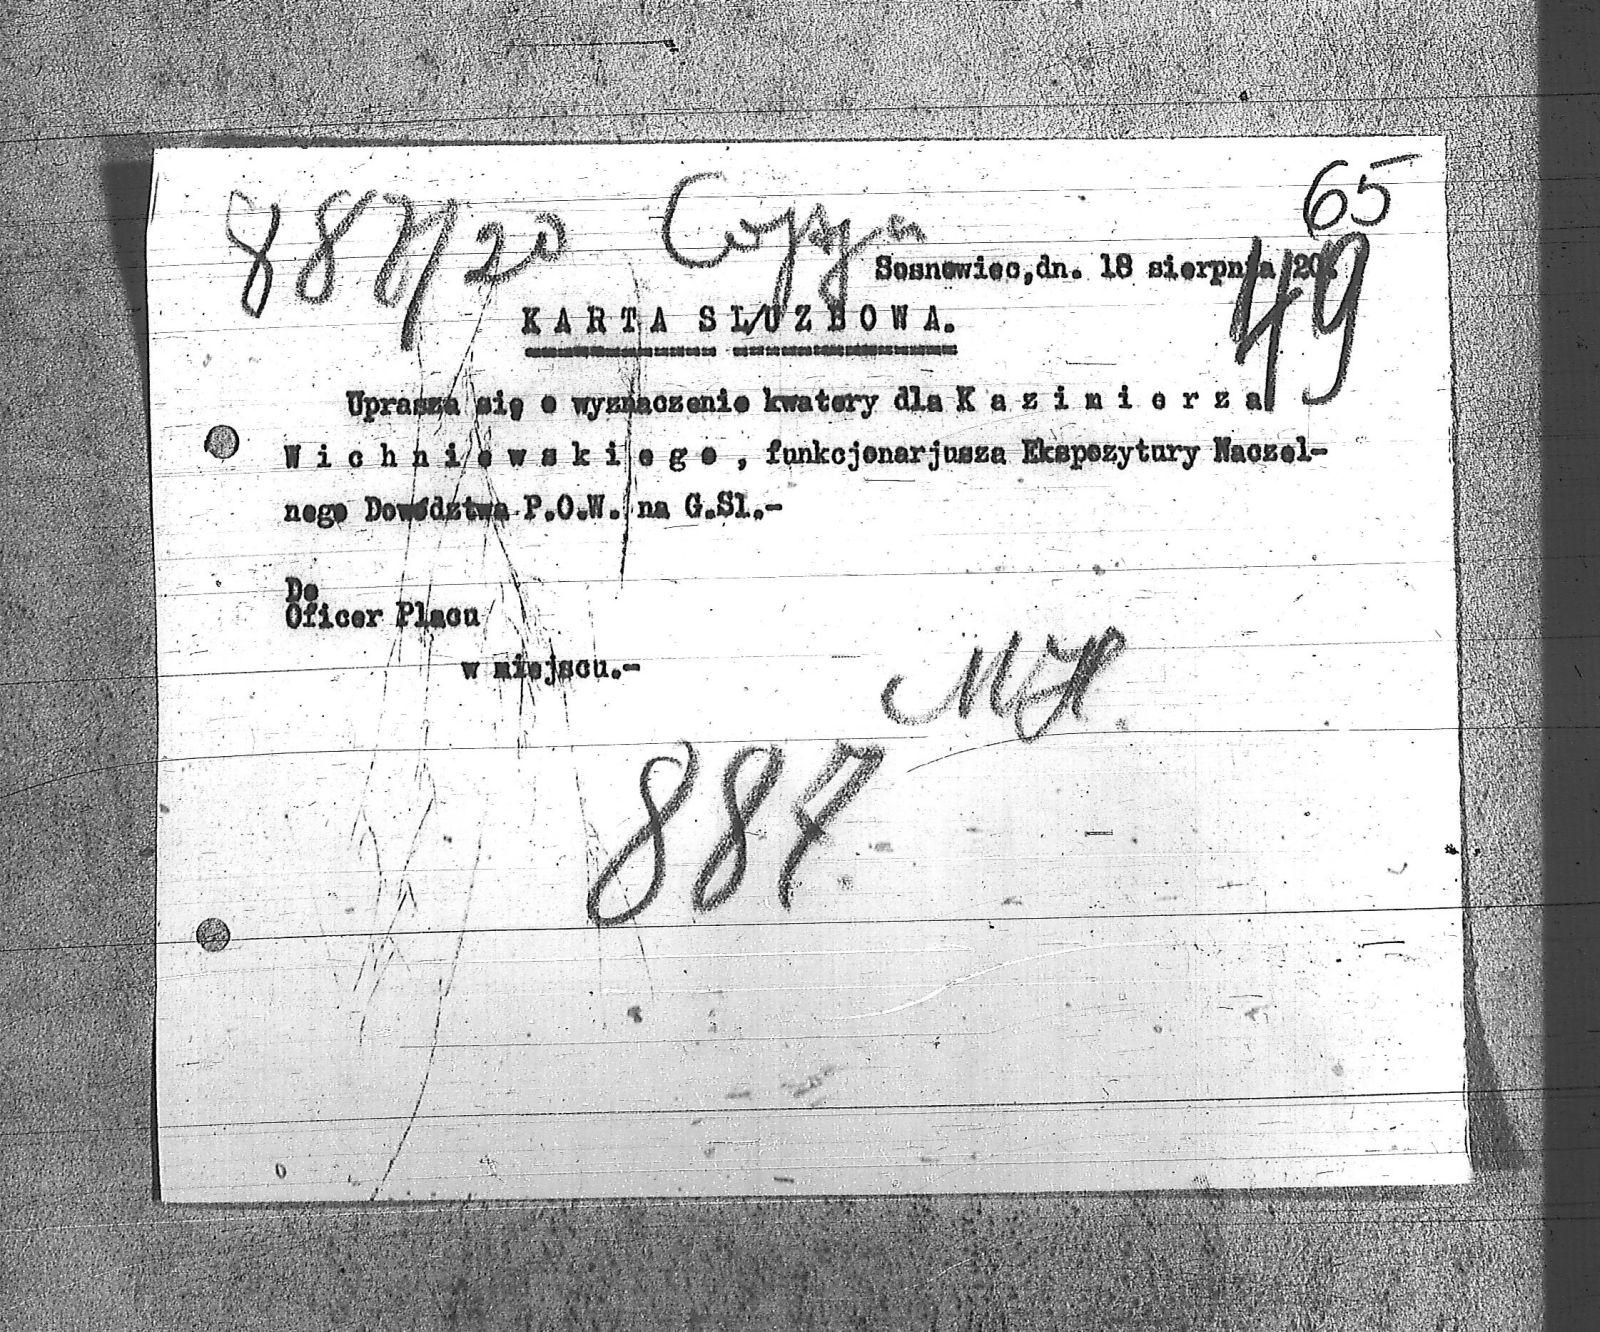 65
887/20 Copja
49
Sosnowiec,dn. 18 sierpnia 20.
KARTA SŁUZBOWA.
Uprasza się o wyznaczenie kwatery dla Kazimierza
Wichniewskiego, funkcjonarjusza Ekspozytury Naczel-
nego Dowództwa P.O.W. na G.Sl.-
Do
Oficer Placu
w miejscu.-
887